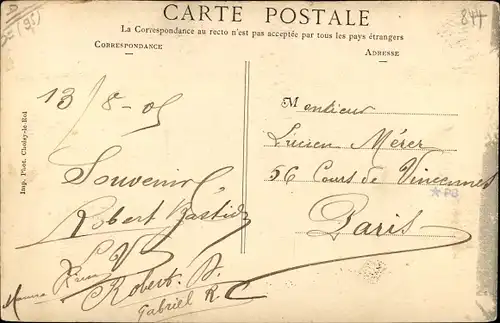 CARTE POSTALE
La Correspondance au recto n'est pas acceptée par tous les pays étrangers
CORRESPONDANCE
ADRESSE
844
(95)
13/8-05
Souvenir
Robert Bastid
Robert. B.
Gabriel R.
Monsieur
Lucien Mérer
56 Cours de Vincennes
Paris
PB
Imp. Phot. Choisy-le-Roi